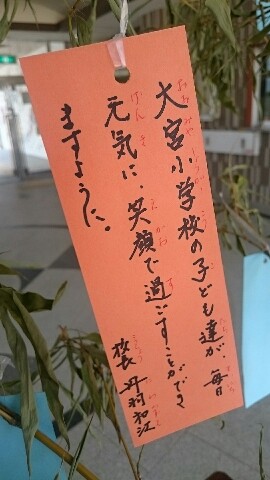 大宮小学校の子ども達が、毎日
元気に、笑顔で過ごすことができ
ますように。
校長 丹羽和江